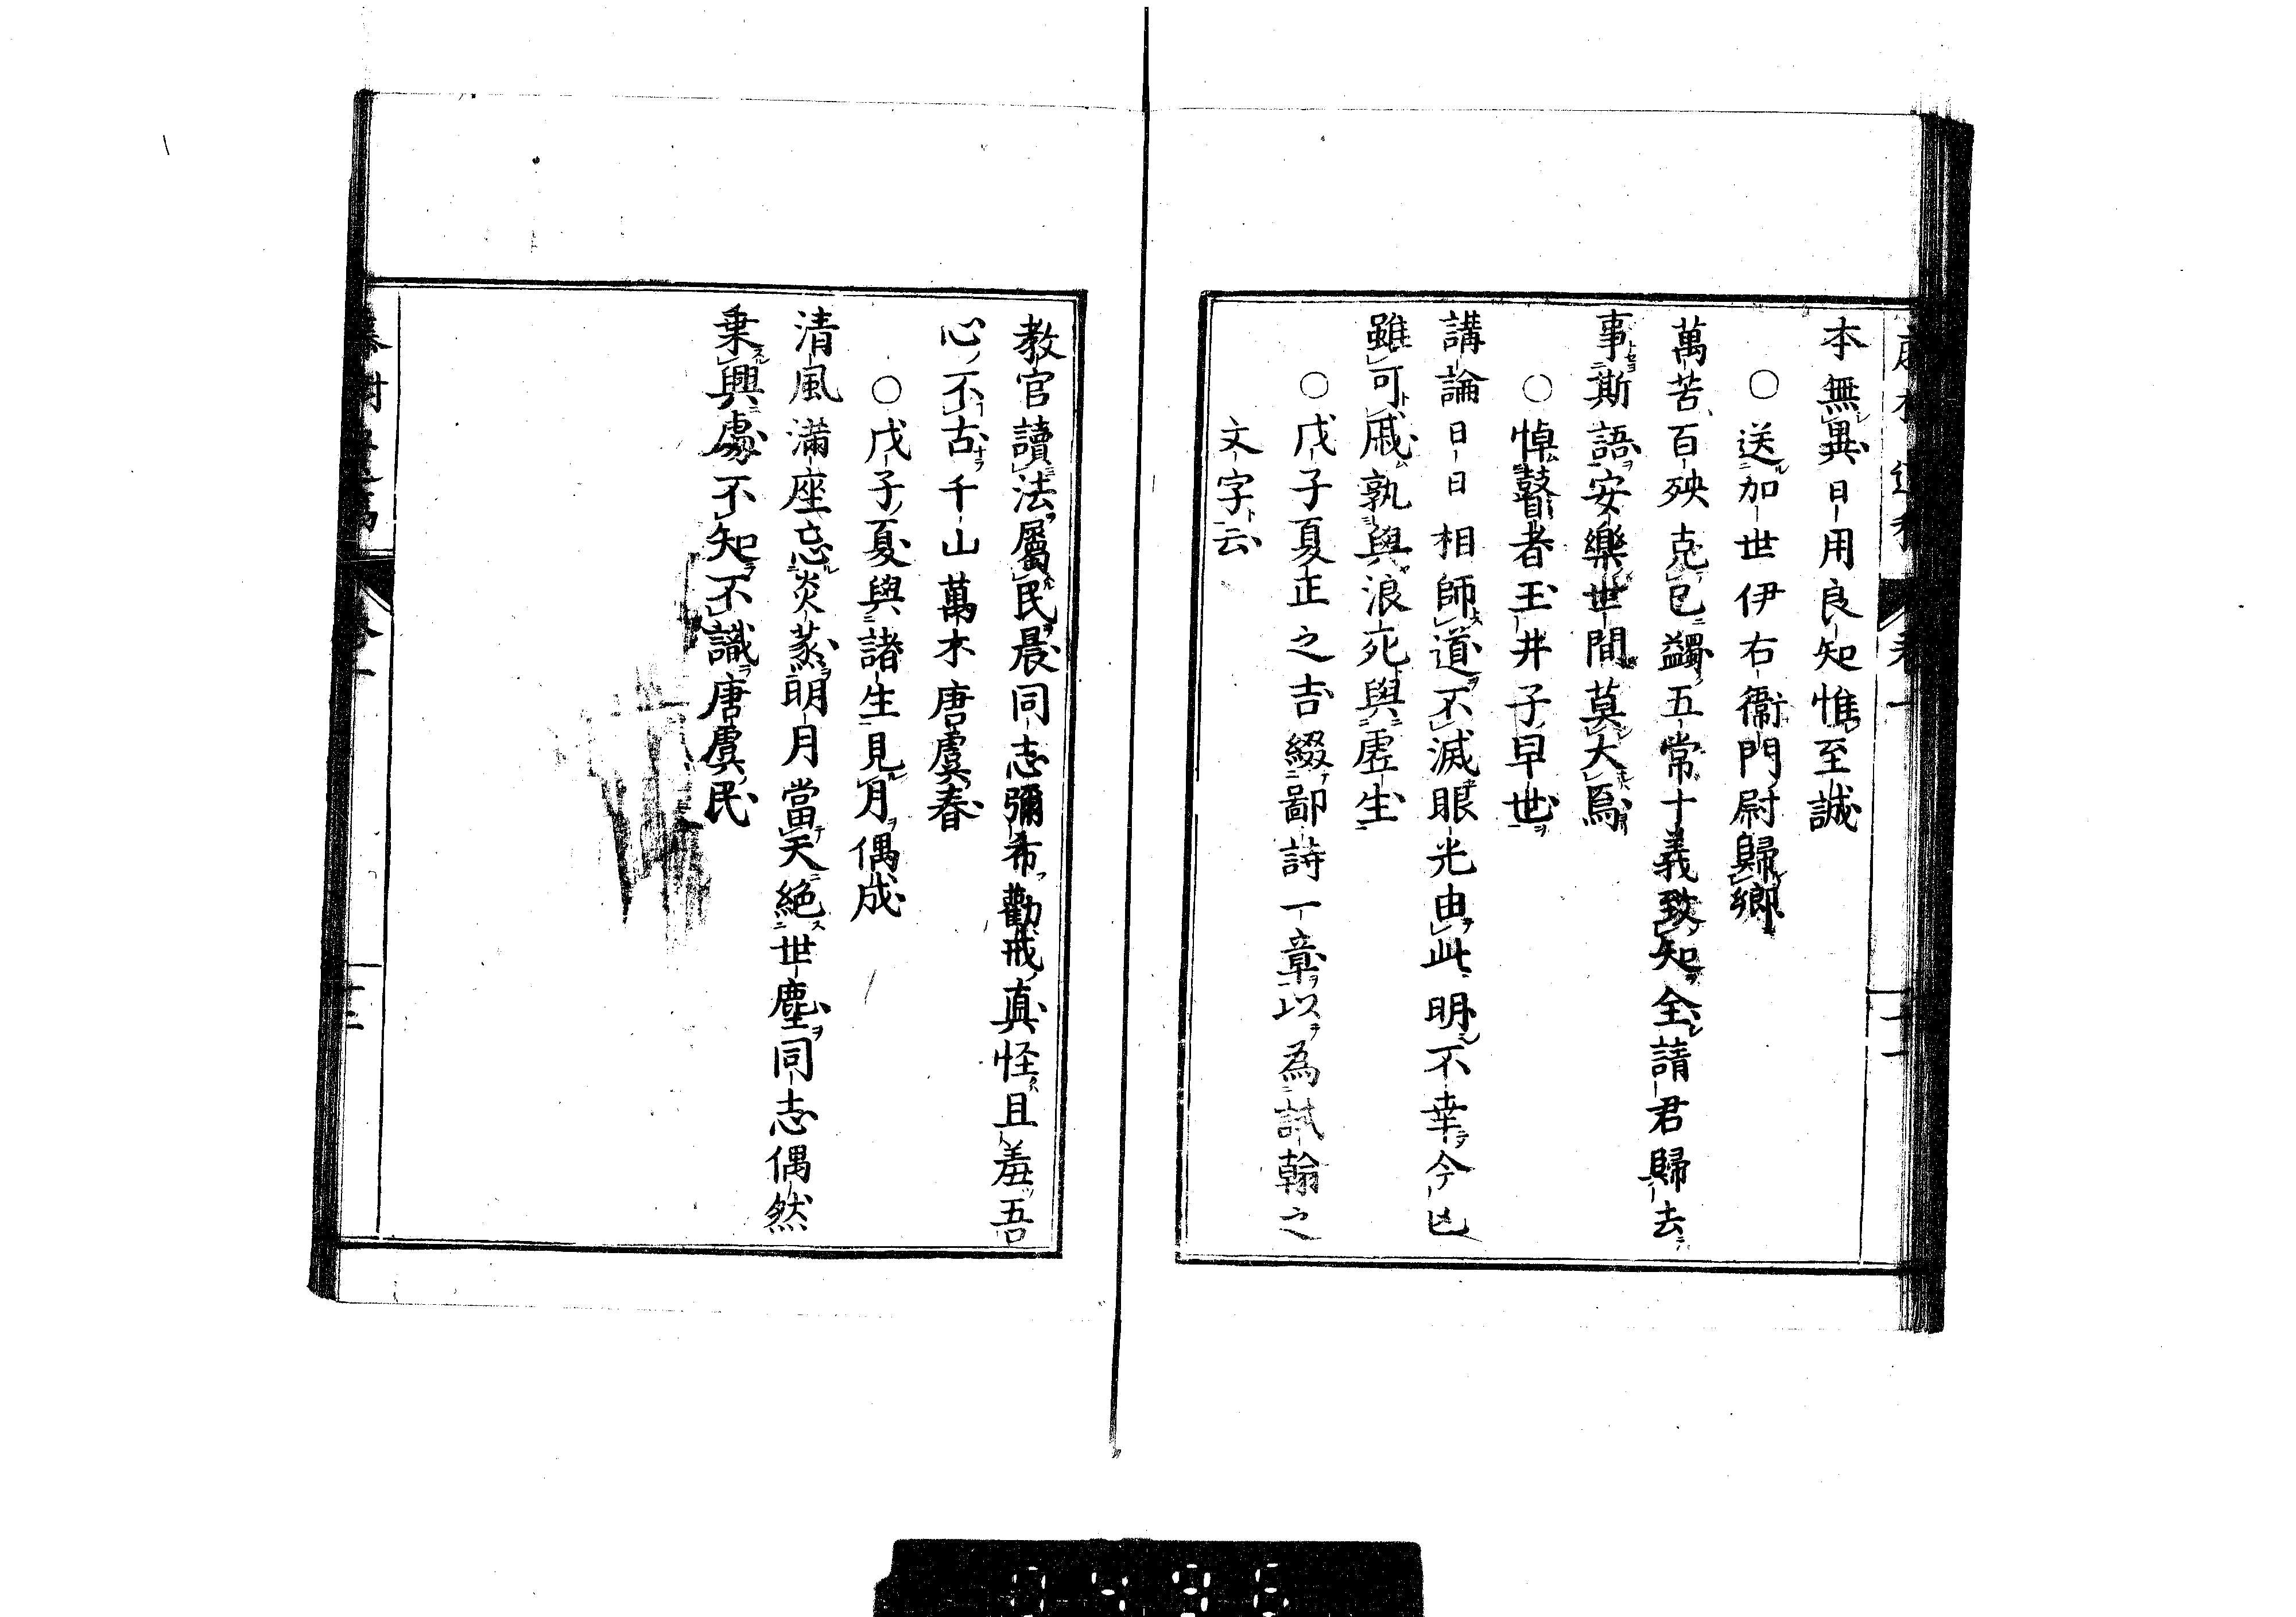 本無異日用良知惟至誠
○送加世伊右衛門尉歸鄉
萬苦百殃克已蠲五常十義致知全請君歸去
事斯語安樂世間莫大焉
○悼瞽者玉井子早世
講論日日相師道不滅眼光由此明不幸今亡
雖可戚孰與浪死與虚生
○戊子夏正之吉綴鄙詩一章以為試翰之
文字云
教官讀法屬民晨同志彌希勸戒真怪且羞吾
心不古千山萬木唐虞春
○戊子夏與諸生見月偶成
清風滿座忘炎蒸明月當天絕世塵同志偶然
乗興處不知不識唐虞民